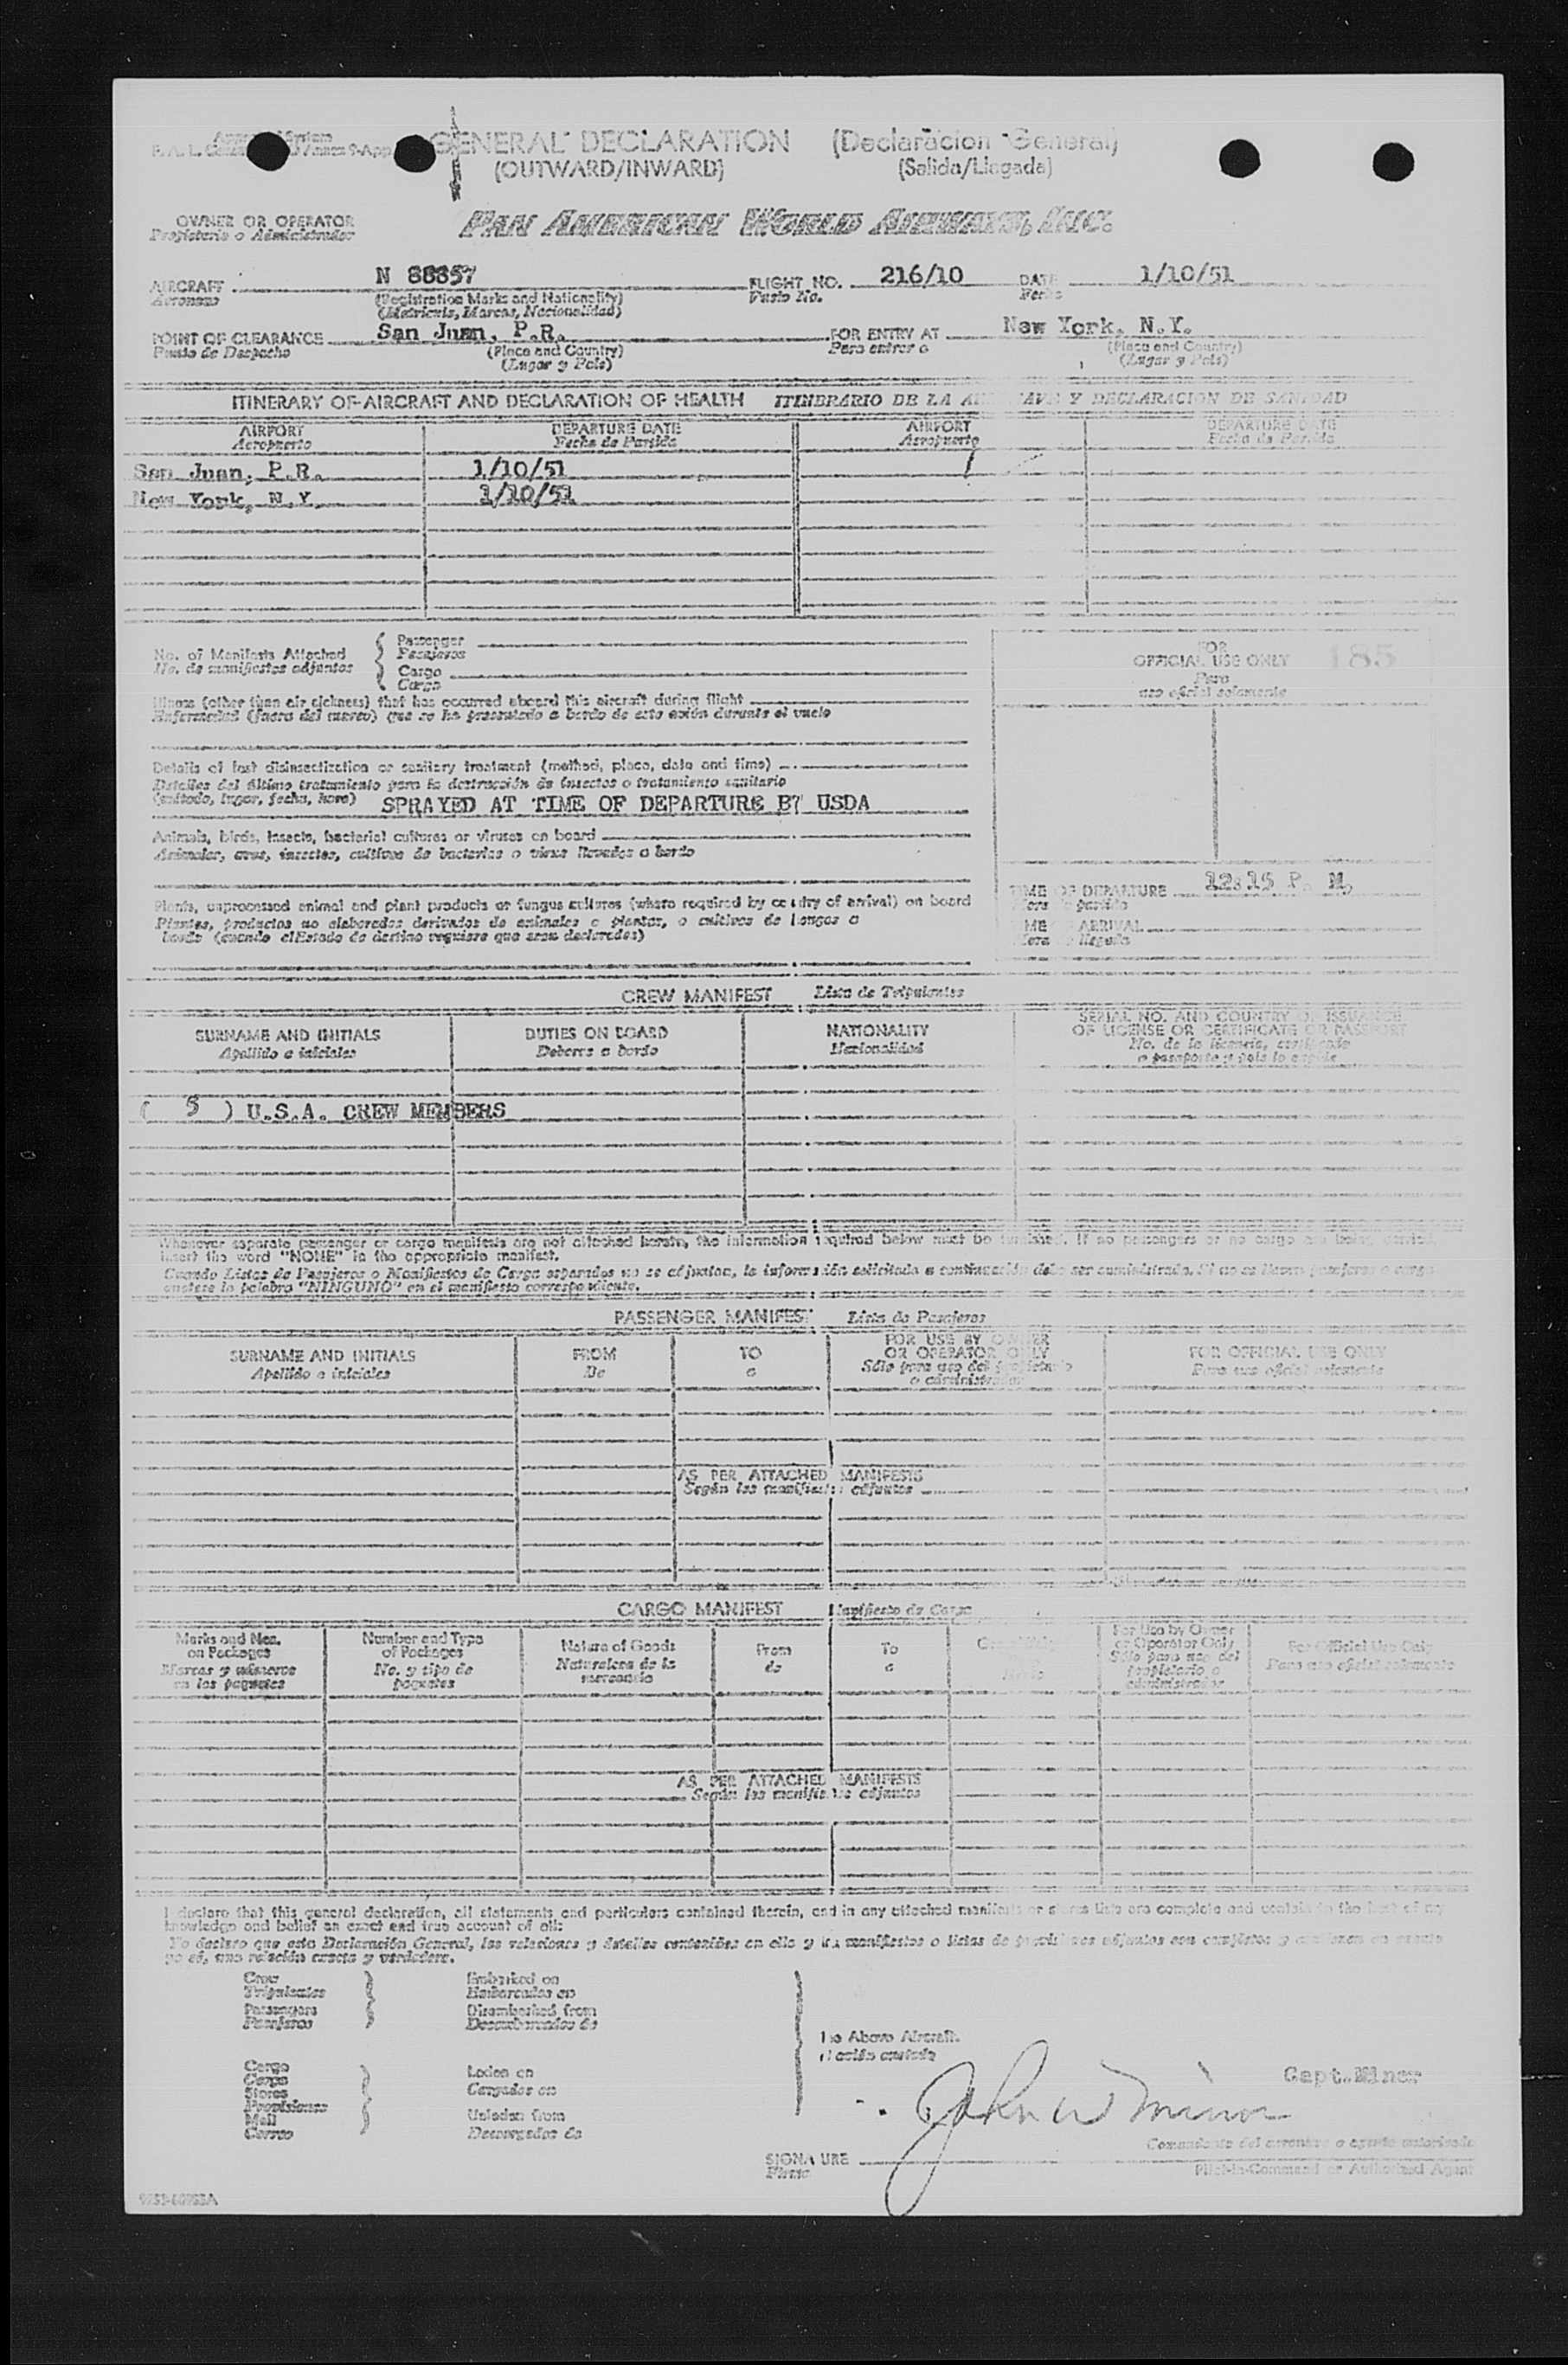 GENERAL DECLARATION (Declaracion General)
(OUTWARD/INWARD) (Salida/Llegada)
OWNER OR OPERATOR PAN AMERICAN WORLD AIRWAYS, INC.
Propietario o Administrador
AIRCRAFT N 88857 FLIGHT NO. 216/10 DATE 1/10/51
Aeronave (Registration Marks and Nationality) Vuelo No. Fecha
(Matricula, Marcas, Nacionalidad)
POINT OF CLEARANCE San Juan, P.R. FOR ENTRY AT New York, N.Y.
Punto de Despacho (Place and Country) Para entrar a (Place and Country)
(Lugar y Pais) (Lugar y Pais)
ITINERARY OF AIRCRAFT AND DECLARATION OF HEALTH ITINERARIO DE LA Y DECLARACION DE SANIDAD
AIRPORT DEPARTURE DATE AIRPORT DEPARTURE DATE
Aeropuerto Fecha de Partida Aeropuerto Fecha de Partida
San Juan, P.R. 1/10/51
New York, N.Y. 1/10/51
No. of Manifests Attached Passenger
No. de manifiestos adjuntos Pasajeros
Cargo
Carga
FOR
OFFICIAL USE ONLY 185
Para
uso oficial solamente
Illness (other than air sickness) that has occurred aboard this aircraft during flight
Enfermedad (fuera del mareo) que se ha presentado a bordo de este avión durante el vuelo
Details of last disinsectization or sanitary treatment (method, place, date and time)
Detalles del último tratamiento para la destrucción de insectos o tratamiento sanitario
(método, lugar, fecha, hora) SPRAYED AT TIME OF DEPARTURE BY USDA
Animals, birds, insects, bacterial cultures or viruses on board
Animales, aves, insectos, cultivos de bacterias o virus llevados a bordo
TIME OF DEPARTURE 12:15 P. M.
Hora de partida
Plants, unprocessed animal and plant products or fungus cultures (where required by country of arrival) on board
Plantas, productos no elaborados derivados de animales o plantas, o cultivos de hongos a
bordo (cuando el Estado de destino requiere que sean declarados)
ARRIVAL
llegada
CREW MANIFEST Lista de Tripulantes
SURNAME AND INITIALS DUTIES ON BOARD NATIONALITY SERIAL NO. AND COUNTRY OF ISSUANCE
OF LICENSE OR CERTIFICATE OR PASSPORT
Apellido e iniciales Deberes a bordo Nacionalidad No. de la licencia, certificado
o pasaporte y pais lo expide
( 5 ) U.S.A. CREW MEMBERS
Whenever separate passenger or cargo manifests are not attached hereto, the information required below must be furnished. If no passengers or no cargo are being carried,
insert the word "NONE" in the appropriate manifest.
Cuando Listas de Pasajeros o Manifiestos de Carga separados no se adjuntan, la información solicitada a continuación debe ser suministrada. Si no se llevan pasajeros o carga
anótese la palabra "NINGUNO" en el manifiesto correspondiente.
PASSENGER MANIFEST Lista de Pasajeros
SURNAME AND INITIALS FROM TO FOR USE BY OWNER
OR OPERATOR ONLY FOR OFFICIAL USE ONLY
Apellido e iniciales De a Sólo para uso del propietario
o administrador Para uso oficial solamente
AS PER ATTACHED MANIFESTS
Según los manifiestos adjuntos
CARGO MANIFEST Manifiesto de Carga
Marks and Nos.
on Packages
Marcas y números
en los paquetes
Number and Type
of Packages
No. y tipo de
paquetes
Nature of Goods
Naturaleza de la
mercancia
From
de
To
a
For Use by Owner
or Operator Only
Sólo para uso del
propietario o
administrador
For Official Use Only
Para uso oficial solamente
AS PER ATTACHED MANIFESTS
Según los manifiestos adjuntos
I declare that this general declaration, all statements and particulars contained therein, and in any attached manifests or stores lists are complete and contain to the best of my
knowledge and belief an exact and true account of all:
Yo declaro que esta Declaración General, las relaciones y detalles contenidos en ella y los manifiestos o listas de provisiones adjuntos son completos y
yo sé, una relación exacta y verdadera.
Crew Embarked on
Tripulantes Embarcados en
Passengers Disembarked from
Pasajeros Desembarcados de
The Above Aircraft.
El avión
Cargo
Carga Laden on
Stores Cargados en
Provisiones
Mail Unladen from
Correo Descargados de
Capt. Minor
John W Minor
SIGNATURE Comandante del aeronave o agente autorizado
Firma Pilot-in-Command or Authorized Agent